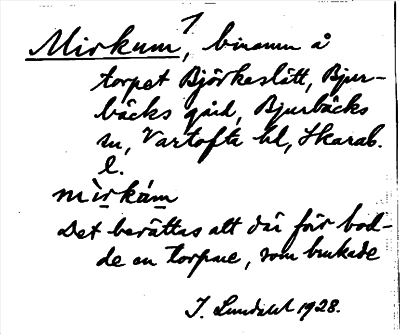 1
Mirkum, binamn å
torpet Björkeslätt, Bjur-
bäcks gård, Bjurbäcks
sn, Vartofta hd, Skarab.
l.
mìrkám
Det berättas att där förr bod-
de en torpare, som brukade
J. Lundahl 1928.